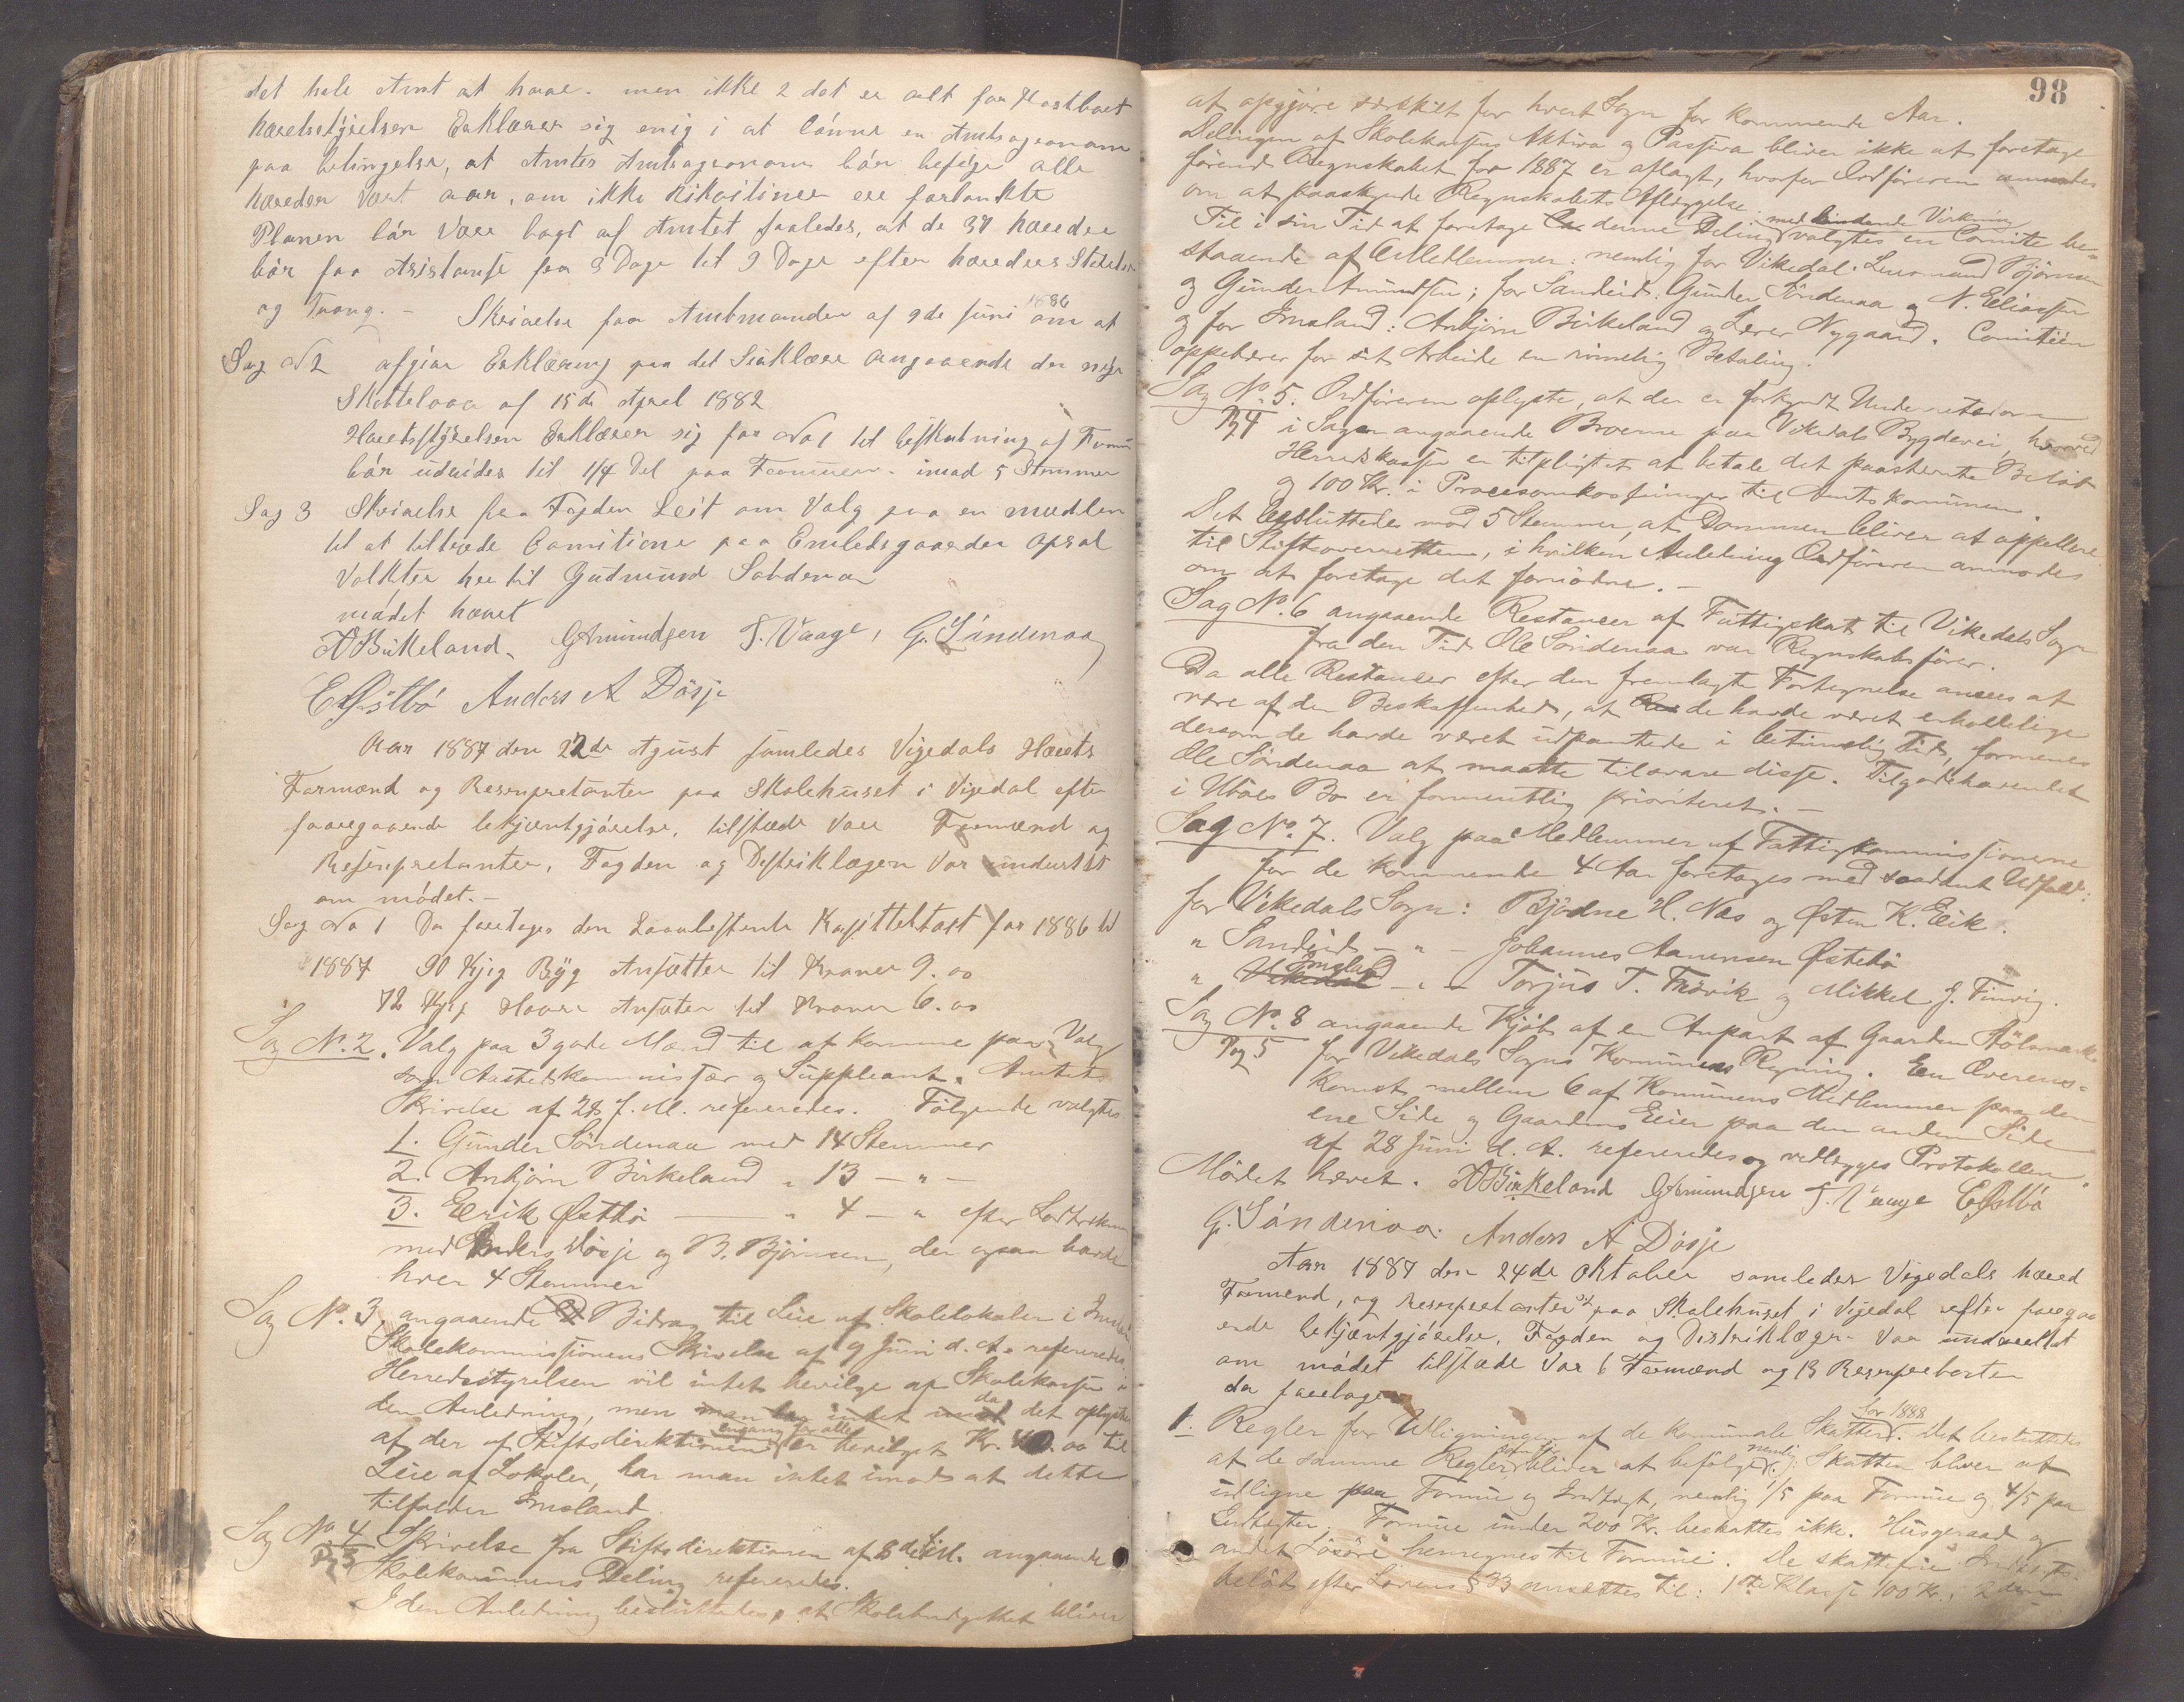 det hele Amt at have. men ikke 2 det er alt for Kostbart
Hæredsstÿrelsen Erklærer sig enig i at lónne en Amtsagronom
paa betingelse, at Amtes Amtsagronom bór befóge alle
Hæreder Vært aar, om ikke
Planen bór Være lagt af Amtet saaledes, at de 34 Hæreder
bór faa Asistanse fra 3 Dage til 9 Dage efter Hæreders Stórelse
og Trang. – Skrivelse fra Amtmanden af 9de Juni 1886 om at
Sag No 2 afgive Erklæring paa det angaaende den nÿe
Skattelov af 15de Aprel 1882
Haredsstÿrelsen Erklærer sig for No 1 til beskatning af Formue
bór udvides til 1/4 Del paa Formuen. imod 5 Stemmer
Sag 3 Skrivelse fra Fogden Leit om Valg paa en medlem
til at tiltræde Comitione paa Embedsgaarden Opsal
Valktes her til Gudmund Sóndenaa
módet hævet
ABirkeland. GAmundsen T. Vaage, G. Sóndenaa
E Østbó Anders A Dósje
Aar 1887 den 22de Agust samledes Vigedals Hæreds
Formænd og Resenpretanter paa Skolehuset i Vigedal efter
foregaaende bekjæntgjórelse, tilstæde Vare Formænd og
Resenpretanter, Fogden og Destriklægen Var underettet
om módet. –
Sag No 1 Da foretages den Lovbestemte Kapittelstakst for 1886 til
1887 90 Kjig Bÿg Ansætter til Kroner 9.00
72 Kjig Havre Ansæter til Kroner 6.00
Sag No. 2. Valg paa 3 gode Mænd til at komme paa Valg
som Aastedskommissær og Suppleant. Amtets
Skrivelse af 28 f. M. refereredes. Følgende valgtes
1. Gunder Söndenaa med 14 Stemmer
2. Anbjörn Birkeland " 13 – " –
3. Eerik Østbö — " 4 – " efter Lodtrækn
med Anders Dösje og B. Björnsen, der ogsaa havde
hver 4 Stemmer
Sag No. 3, angaaende Bidrag til Leie af Skolelokaler i Imsland
Skolekommissionens Skrivelse af 9 Juni d. A. refereredes.
Herredsstyrelsen vil intet bevilge af Skolekassen i
den Anledning, men man har intet imod da det oplystes
af der af Stiftsdirektionen engang for alle er bevilget Kr. .00 til
Leie af Lokaler, har man intet imod at dette
tilfalder Imsland.
Sag No. 4 Skrivelse fra Stiftsdirektionen af 8de angaaende
Pg 3 Skolekommunens Deling refereredes.
I den Anledning besluttedes, at Skolebudgettet bliver
98
at opgjöre særskilt for hvert Sogn for kommende Aar.
Delingen af Skolekassens Aktiva og Passiva bliver ikke at foretage
förend Regnskabet for 1887 er aflagt, hvorfor Ordföreren anmodes
om at paaskynde Regnskabets Aflæggelse.
Til i sin Tid at foretage denne Deling med bindende Virkning valgtes en Comite be-
staaende af Medlemmer: nemlig for Vikedal: Lensmand Björnsen
og Gunder Amundsen; for Sandeid: Gunder Söndenaa og N. Eliassen
og for Imsland: Anbjörn Birkeland og Lærer Nygaard. Comitéen
oppebærer for sit Arbeide en rimelig Betaling.
Sag No. 5. Ordföreren oplyste, at der er forkyndt Underretsdom
Pg 4 i Sagen angaaende Broerne paa Vikedals Bygdevei, hvorved
Herredskassen er tilpligtet at betale det paastævnte Belöb
og 100 Kr. i Procesomkostninger til Amtskommunen.
Det besluttedes mod 5 Stemmer, at Dommen bliver at appellere
til Stiftsoverretten, i hvilken Anledning Ordföreren anmodes
om at foretage det fornödne. –
Sag No. 6 angaaende Restancer af Fattigskat til Vikedals Sogn
fra den Tid Ole Söndenaa var Regnskabsförer.
Da alle Restancer efter den fremlagte Fortegnelse ansees at
være af den Beskaffenhed, at de havde været erholdelige
dersom de havde været udpantede i betimelig Tid, formenes
Ole Söndenaa at maatte tilsvare disse. Tilgodehavendet
i Bo er formentlig prioriteret. –
Sag No. 7. Valg paa Medlemmer af Fattigkommissionerne
for de kommende 4 Aar foretages med saadant Udfald:
for Vikedals Sogn: Bjödne H. Næs og Østen K. Eeik.
" Sandeids – " – Johannes Aanensen Østebö
" Vikedal Imsland – " – Torjus T. Frövik og Mikkel J. Finvig.
Sag No. 8 angaaende Kjöb af en Anpart af Gaarden Hölsmark
Pg 5 for Vikedals Sogns Kommunes Regning. En Overens-
komst mellem 6 af Kommunens Medlemmer paa den
ene Side og Gaardens Eier paa den anden Side
af 28 Juni d. A. refereredes og vedlægges Protokollen.
Mödet hævet. ABirkeland GAmundsen T. Vaage E Østbó
G. Sóndenaa. Anders A Dósje
Aar 1887 den 24de Oktober samledes Vigedals hæred
Formænd, og Resenpretanter paa Skolehuset i Vigedal efter foregaa
ende bekjæntgjórelse, Fogden og Destriklægen Var underettet
om módet tilstæde Var 6 Formænd og 13 Resenpretanter
da foretages
1. Regler for Udligningen af de kommunale Skatter for 1888. Det besluttedes
at de samme Regler bliver at befölge, nemlig: Skatten bliver at
udligne paa Formue og Indtægt, nemlig 1/5 paa Formue og 4/5 paa
Indtægter. Formue under 200 Kr. beskattes ikke. Husgeraad og
andet Lösöre henregnes til Formue. De skattefrie Indtægts-
belöb efter Lovens § 33 ansættes til: 1ste Klasse 100 Kr., 2den